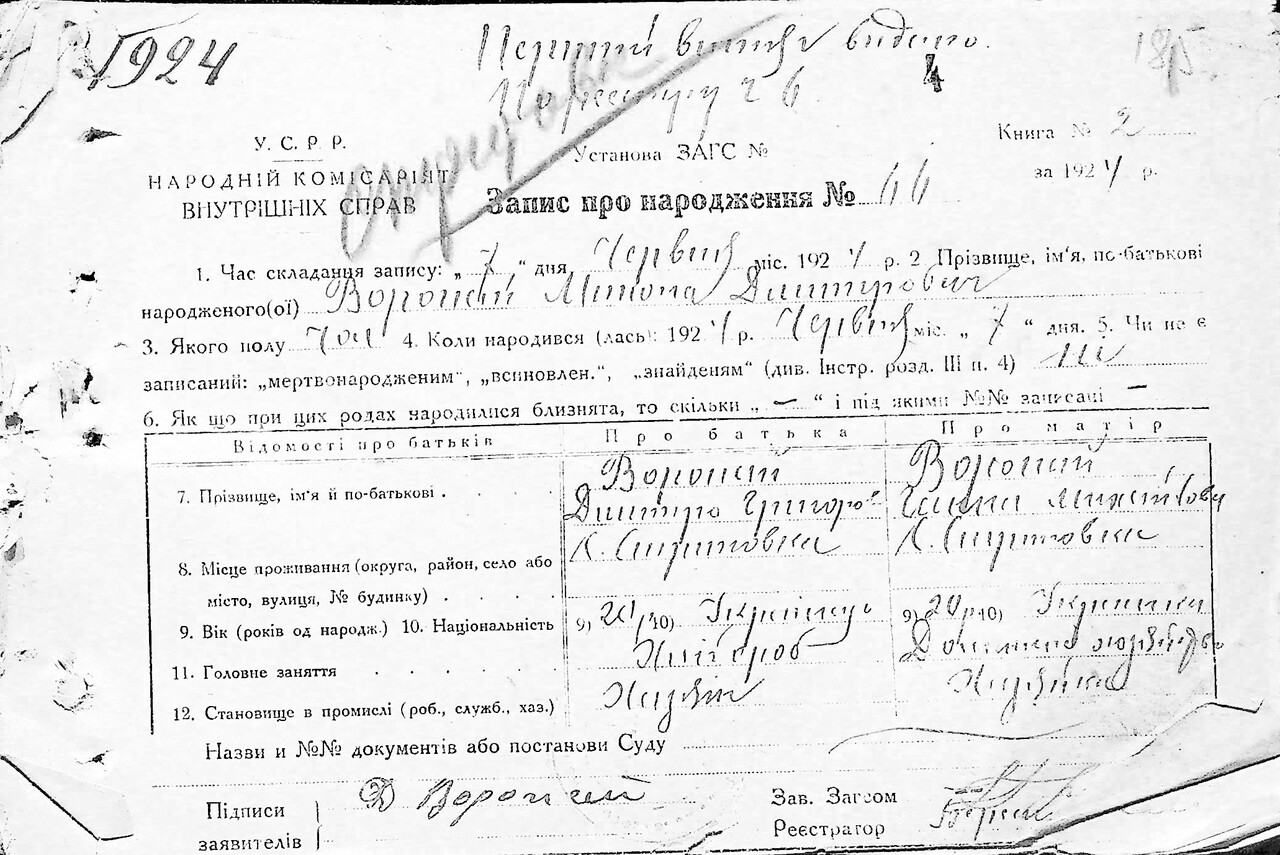 1924
Перший витяг видано.
По реєстру ч 6
4
185
У. С. Р. Р.
НАРОДНІЙ КОМІСАРІЯТ
ВНУТРІШНІХ СПРАВ
Установа ЗАГС №
Книга № 2
за 1924 р.
Запис про народження № 66
1. Час складання запису: „ 7 “ дня Червня міс. 1924 р. 2 Прізвище, ім'я, по-батькові
народженого(ої) Вороний Дмитрович
3. Якого полу чол 4. Коли народився (лась): 1924 р. Червня міс. „ 7 “ дня. 5. Чи не є
записаний: „мертвонародженим“, „всиновлен.“, „знайденям“ (див. Інстр. розд. III п. 4) ні
6. Як що при цих родах народилися близнята, то скільки „ — “ і під якими №№ записані —
Відомості про батьків Про батька Про матір
7. Прізвище, ім'я й по-батькові . . . . Вороний Вороний
Дмитро Григоров
8. Місце проживання (округа, район, село або
місто, вулиця, № будинку) . . . .
9. Вік (років од народж.) 10. Національність 9) 20 р 10) Українець 9) 20 р 10) Українка
11. Головне заняття . . . . . Хлібороб
12. Становище в промислі (роб., служб., хаз.) Хазяїн Хазяйка
Назви и №№ документів або постанови Суду
Підписи
заявителів
Д Вороний
Зав. Загсом
Реєстратор